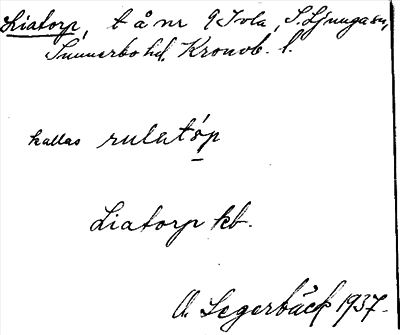 Liatorp, t å nr 9 Tvla, S. Ljunga sn,
Sunnerbo hd, Kronob. l.
kallas rulatóp
Liatorp kb.
A. Segerbäck 1937.